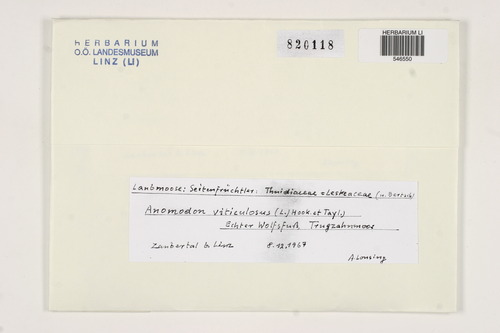 HERBARIUM
O.Ö. LANDESMUSEUM
LINZ (LI)
820118
HERBARIUM LI
546550
Laubmoose: Seitenfrüchtler: Thuidiaceae = Leskeaceae (n. Bertsch)
Anomodon viticulosus (L.) Hook. et Tayl.)
Echter Wolfsfuß, Trugzahnmoos
Zaubertal b. Linz 8.12.1967
A. Lonsing